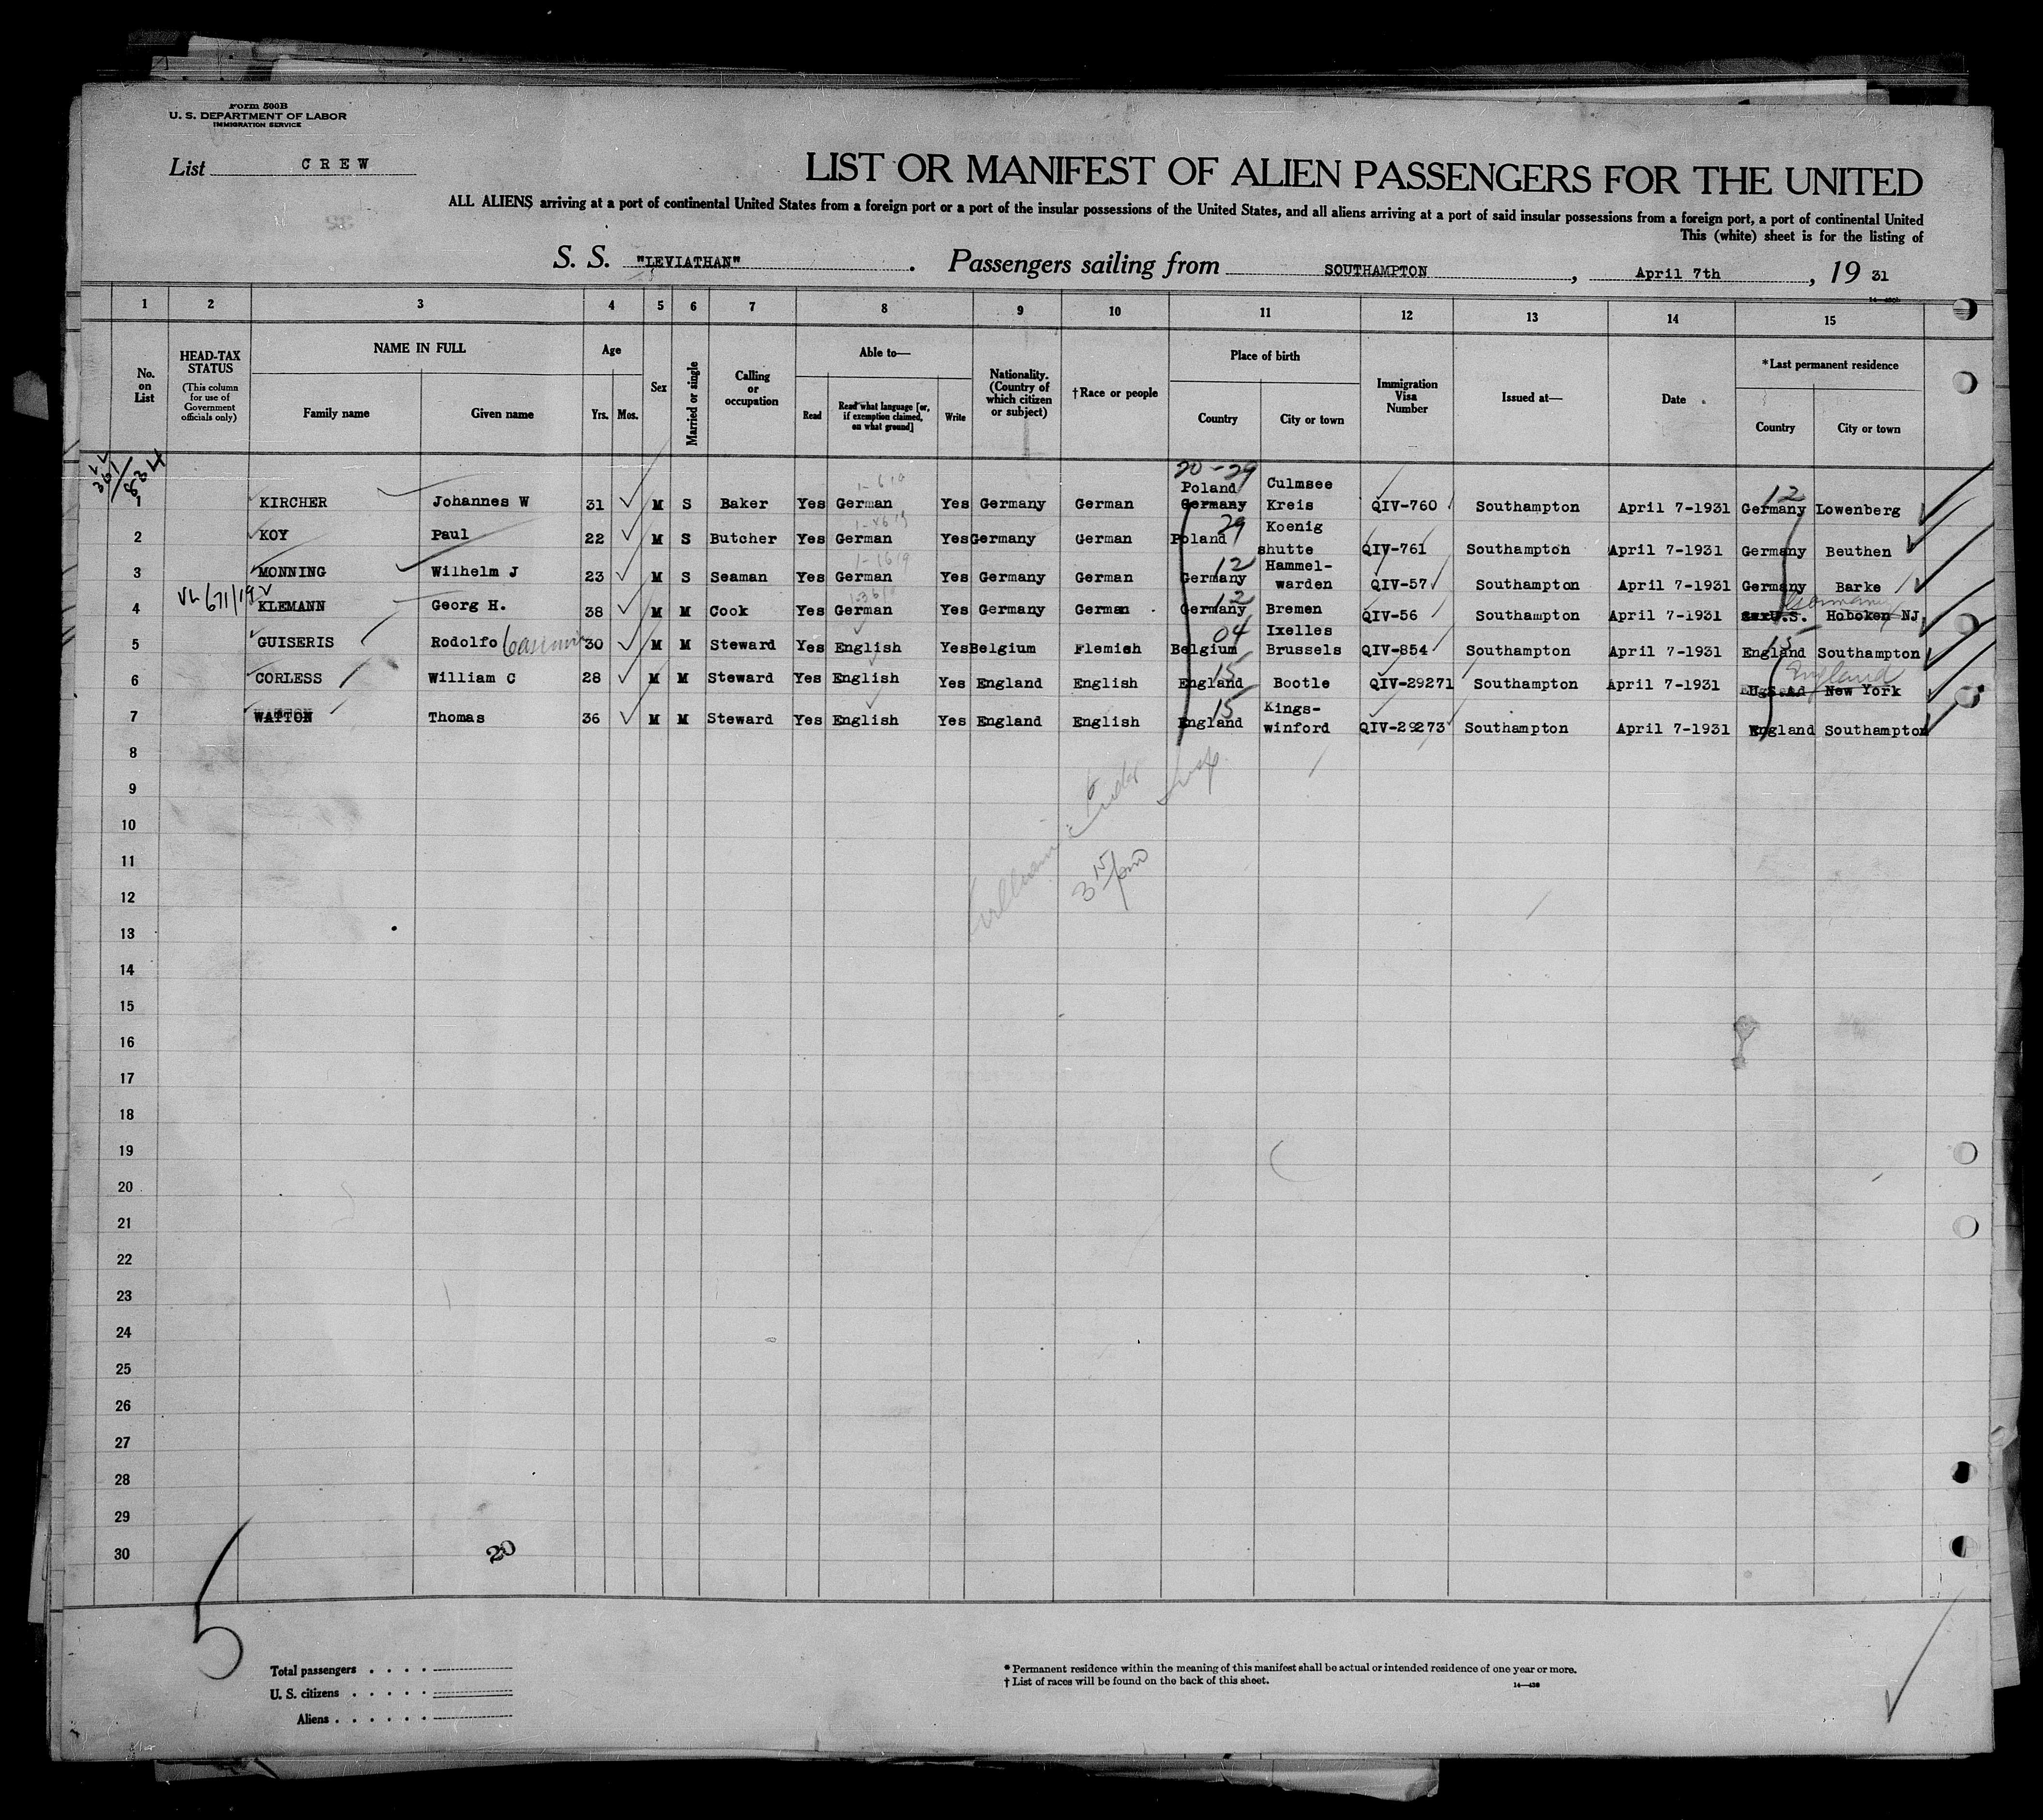 Form 500B
U. S. DEPARTMENT OF LABOR
IMMIGRATION SERVICE
List CREW
LIST OR MANIFEST OF ALIEN PASSENGERS FOR THE UNITED
ALL ALIENS arriving at a port of continental United States from a foreign port or a port of the insular possessions of the United States, and all aliens arriving at a port of said insular possessions from a foreign port, a port of continental United
This (white) sheet is for the listing of
S. S. "LEVIATHAN" . Passengers sailing from SOUTHAMPTON , April 7th , 19 31
1 2 3 4 5 6 7 8 9 10 11 12 13 14 15
No. on List
HEAD-TAX STATUS (This column for use of Government officials only)
NAME IN FULL
Family name Given name
Age
Yrs. Mos.
Sex
Married or single
Calling or occupation
Able to—
Read Read what language [or, if exemption claimed, on what ground] Write
Nationality. (Country of which citizen or subject)
†Race or people
Place of birth
Country City or town
Immigration Visa Number
Issued at—
Date
*Last permanent residence
Country City or town
361/834
20-29
1 KIRCHER Johannes W 31 M S Baker Yes German Yes Germany German Poland Germany Culmsee Kreis QIV-760 Southampton April 7-1931 12 Germany Lowenberg
2 KOY Paul 22 M S Butcher Yes German Yes Germany German Poland 29 Koenig shutte QIV-761 Southampton April 7-1931 Germany Beuthen
3 MONNING Wilhelm J 23 M S Seaman Yes German Yes Germany German Germany 12 Hammel-warden QIV-57 Southampton April 7-1931 Germany Barke
671/19
4 KLEMANN Georg H. 38 M M Cook Yes German Yes Germany German Germany 12 Bremen QIV-56 Southampton April 7-1931 U.S. Hoboken NJ Germany
5 GUISERIS Rodolfo Casimir 30 M M Steward Yes English Yes Belgium Flemish Belgium 04 Ixelles Brussels QIV-854 Southampton April 7-1931 15 England Southampton
6 CORLESS William C 28 M M Steward Yes English Yes England English England 15 Bootle QIV-29271 Southampton April 7-1931 England New York
7 WATTON Thomas 36 M M Steward Yes English Yes England English England 15 Kings-winford QIV-29273 Southampton April 7-1931 England Southampton
8
9
10
11
3 15/pm
12
13
14
15
16
17
18
19
20
21
22
23
24
25
26
27
28
29
30
20
5
Total passengers . . . .
U. S. citizens . . . . .
Aliens . . . . . .
* Permanent residence within the meaning of this manifest shall be actual or intended residence of one year or more.
† List of races will be found on the back of this sheet.
14—430